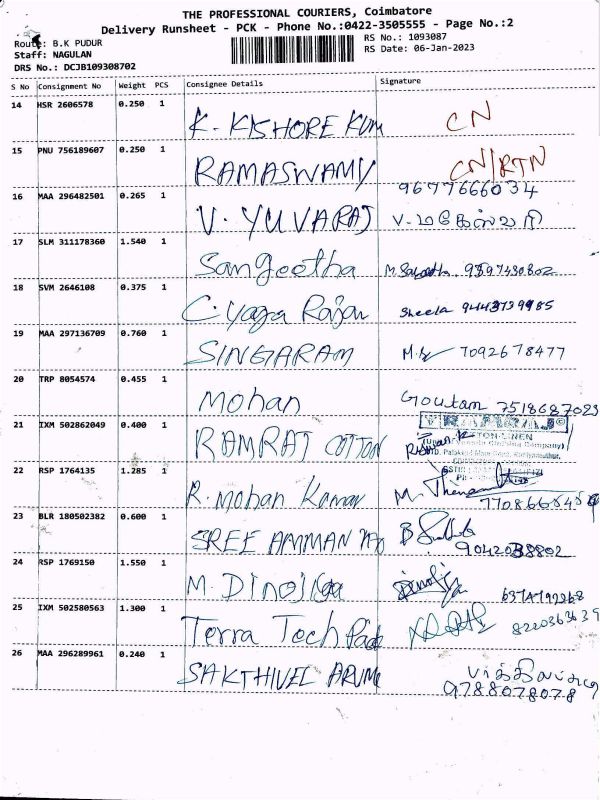 THE PROFESSIONAL COURIERS, Coimbatore
Delivery Runsheet - PCK - Phone No.:0422-3505555 - Page No.:2
Route: B.K PUDUR
RS No.: 1093087
Staff: NAGULAN
RS Date: 06-Jan-2023
DRS No.: DCJB109308702
S No Consignment No Weight PCS Consignee Details Signature
14 HSR 2606578 0.250 1 K. KISHORE KUM CN
15 PNU 756189607 0.250 1 RAMASWAMY CN/RTN
9677666034
16 MAA 296482501 0.265 1 V. YUVARAJ V. மகேஸ்வரி
17 SLM 311178360 1.540 1 Sangeetha
18 SVM 2646108 0.375 1 C. Yaga Rajan Sheela
19 MAA 297136709 0.760 1 SINGARAM 7092678477
20 TRP 8054574 0.455 1 Mohan Goutam 7518687023
21 IXM 502862049 0.400 1 RAMRAJ COTTON
22 RSP 1764135 1.285 1 R. Mohan Kumar M.
23 BLR 180502382 0.600 1 SREE AMMAN
24 RSP 1769150 1.550 1 M. Dinojiga
25 IXM 502580563 1.300 1 Terra Tech
26 MAA 296289961 0.240 1 SAKTHIVEL ARUM
9788078078